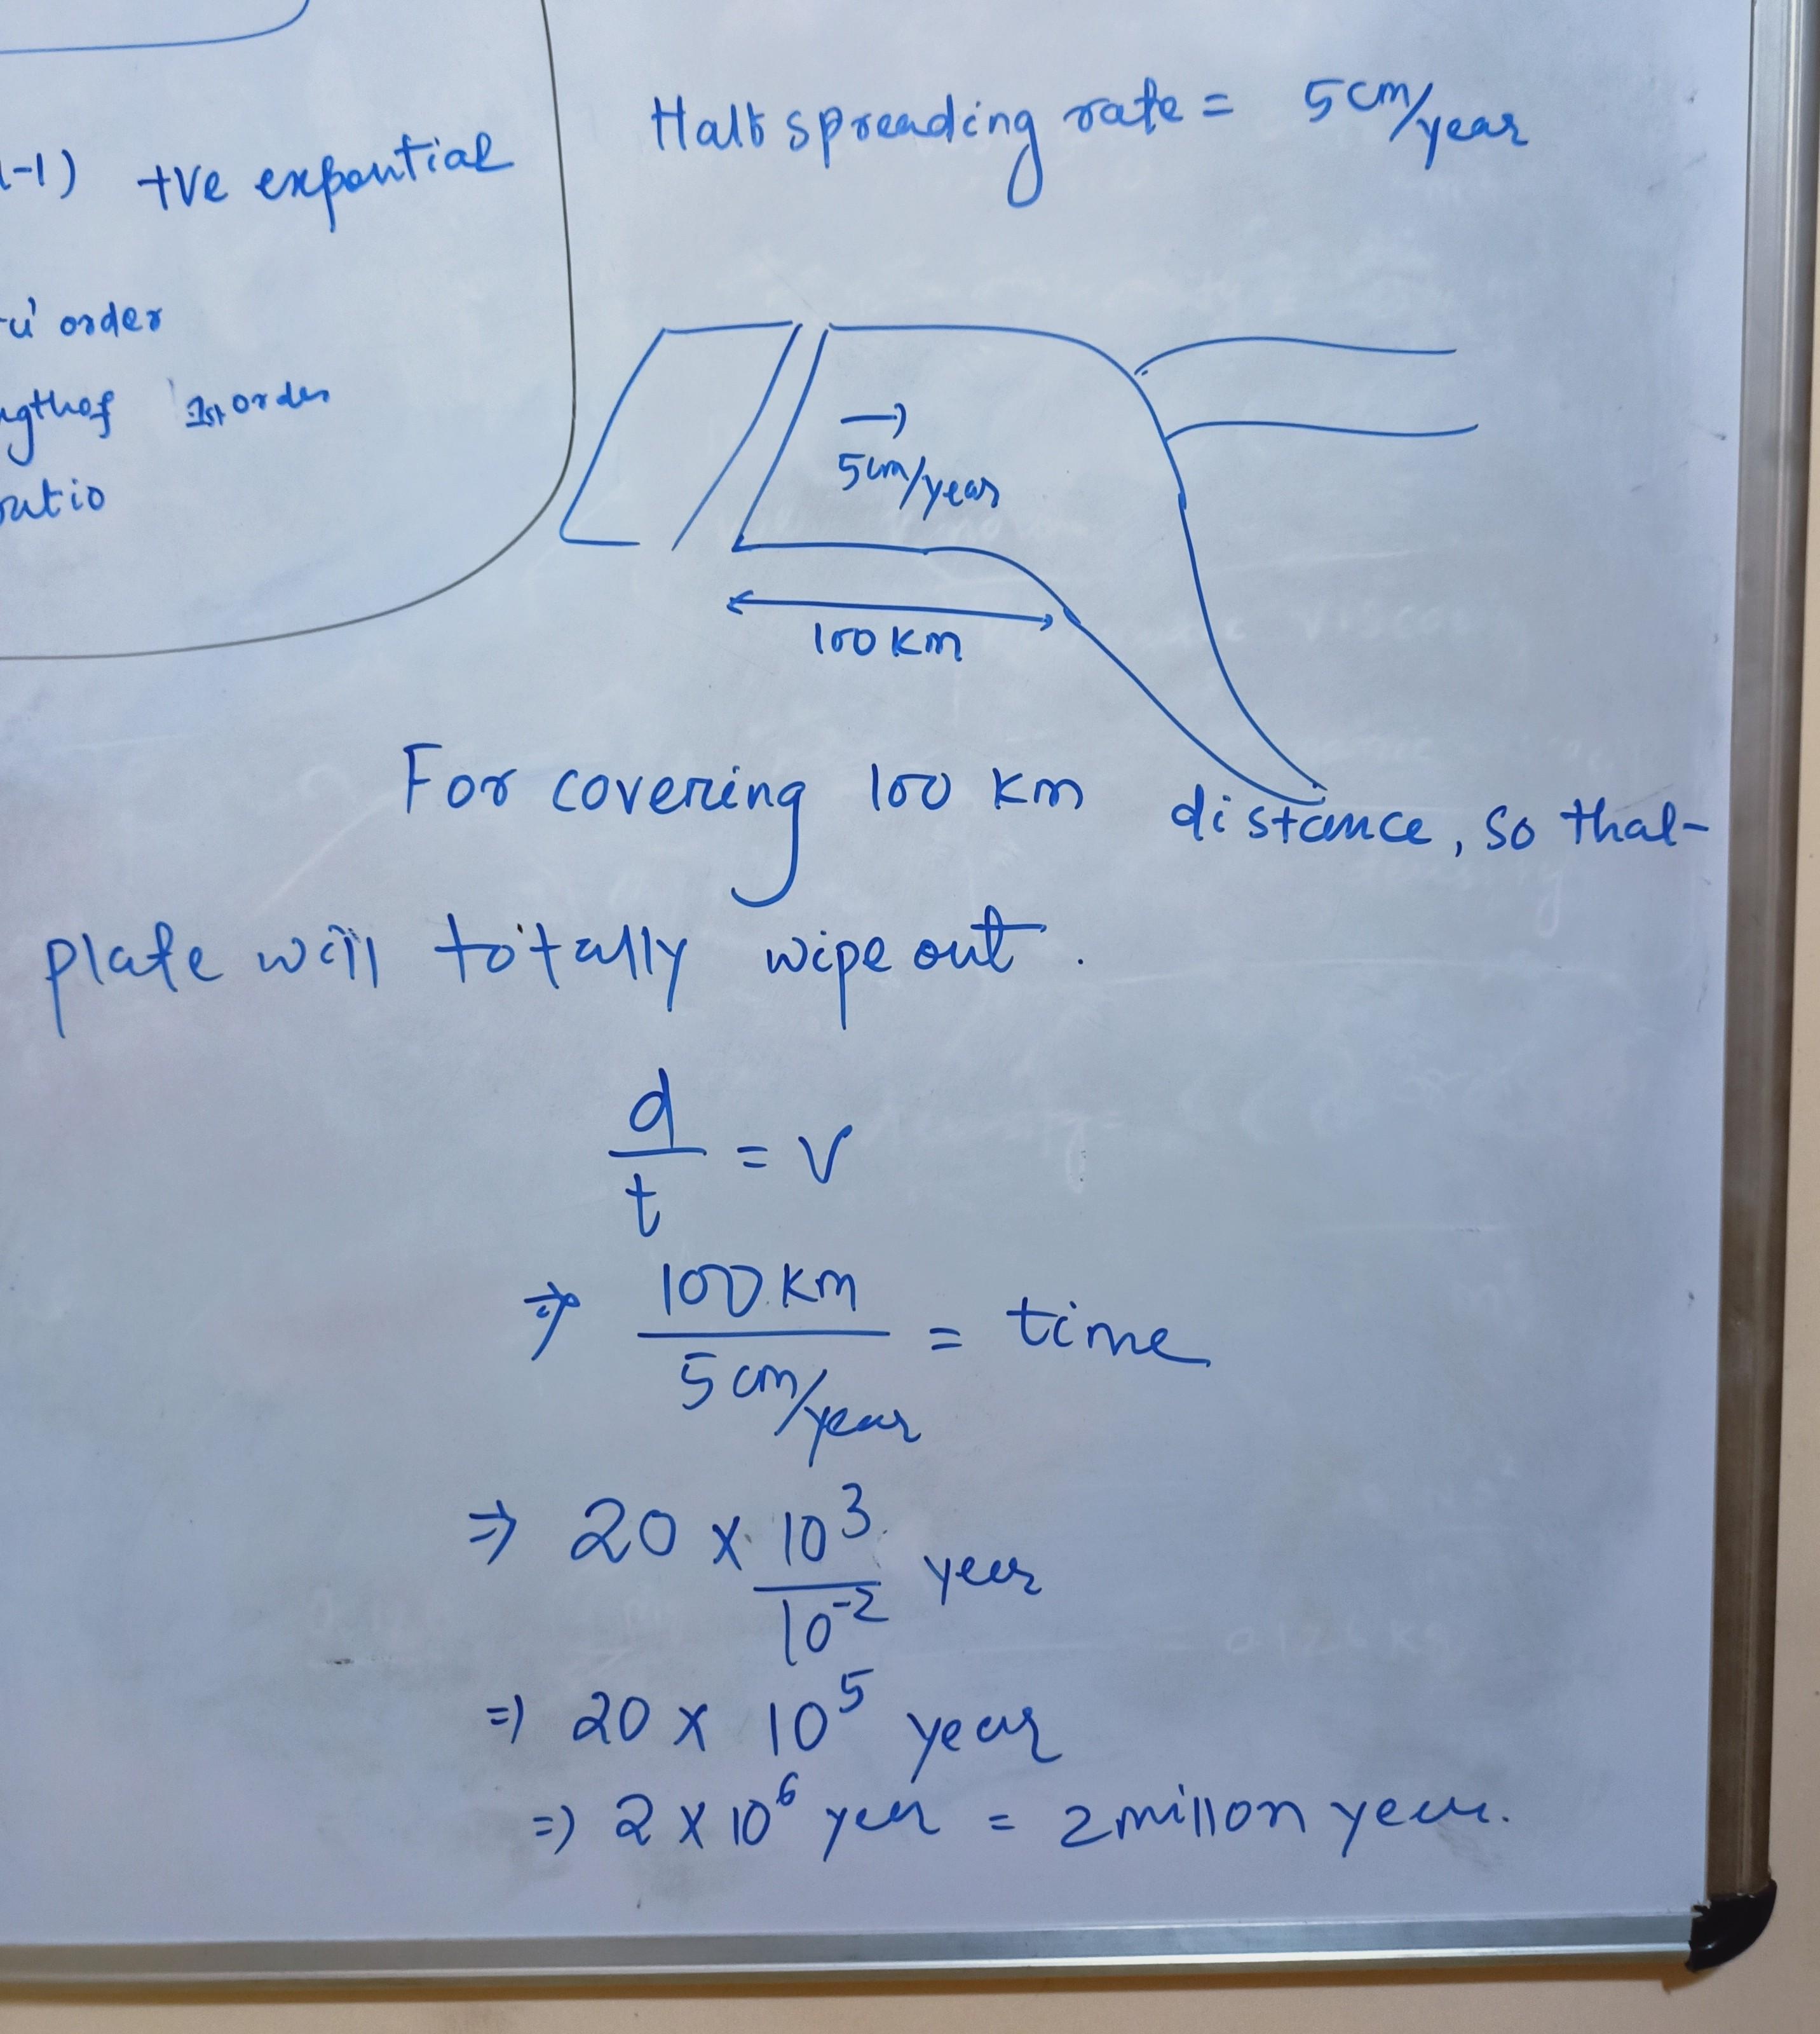 -1) +ve expontial
order
1st order
Half spreading rate = 5cm/year
5cm/year
100 km
For covering 100 km distance, so that
plate will totally wipe out.
d/t = v
⇒ 100 km / 5 cm/year = time
⇒ 20 x 10³ / 10⁻² year
⇒ 20 x 10⁵ year
⇒ 2 x 10⁶ year = 2 millon year.